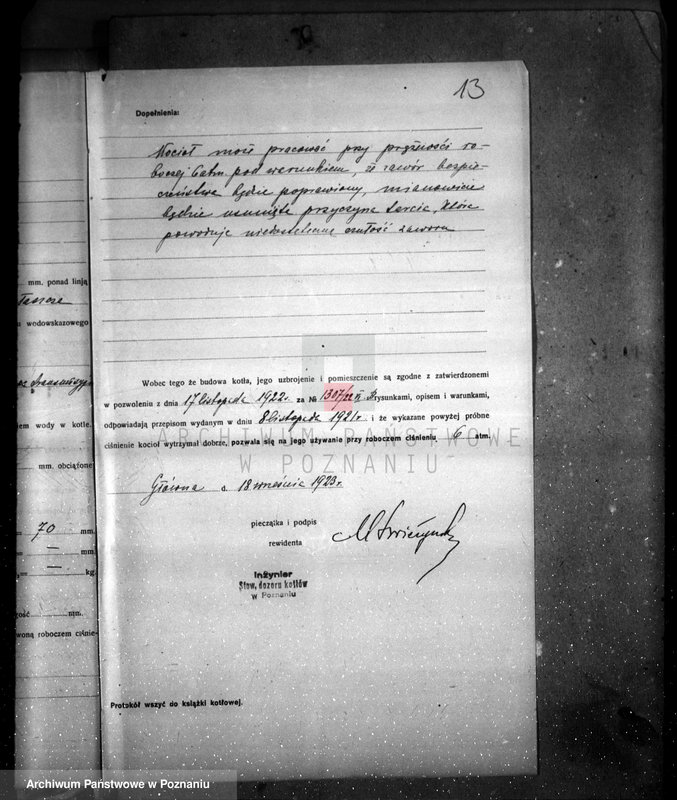 13
Dopełnienia:
Kocioł może pracować przy prężności ro-
boczej 6 atm. pod warunkiem, że zawór bezpie-
czeństwa będzie poprawiony, mianowicie
będzie usunięta przyczyna tarcia, które
powoduje niedostateczną czułość zaworu
mm. ponad linją
wodowskazowego
em wody w kotle.
mm. obciążone
= 70 mm.
= — mm.
= — kg.
gość mm.
woną roboczem ciśnie-
Wobec tego że budowa kotła, jego uzbrojenie i pomieszczenie są zgodne z zatwierdzonemi
w pozwoleniu z dnia 17 listopada 1922 r. za № 1307/22 rysunkami, opisem i warunkami,
odpowiadają przepisom wydanym w dniu 8 listopada 1921 r. i że wykazane powyżej próbne
ciśnienie kocioł wytrzymał dobrze, pozwala się na jego używanie przy roboczem ciśnieniu 6 atm.
ARCHIWUM PAŃSTWOWE
W POZNANIU
Główna d. 18 września 1923 r.
pieczątka i podpis
rewidenta
Inżynier
Stow. dozoru kotłów
w Poznaniu
Protokół wszyć do książki kotłowej.
Archiwum Państwowe w Poznaniu